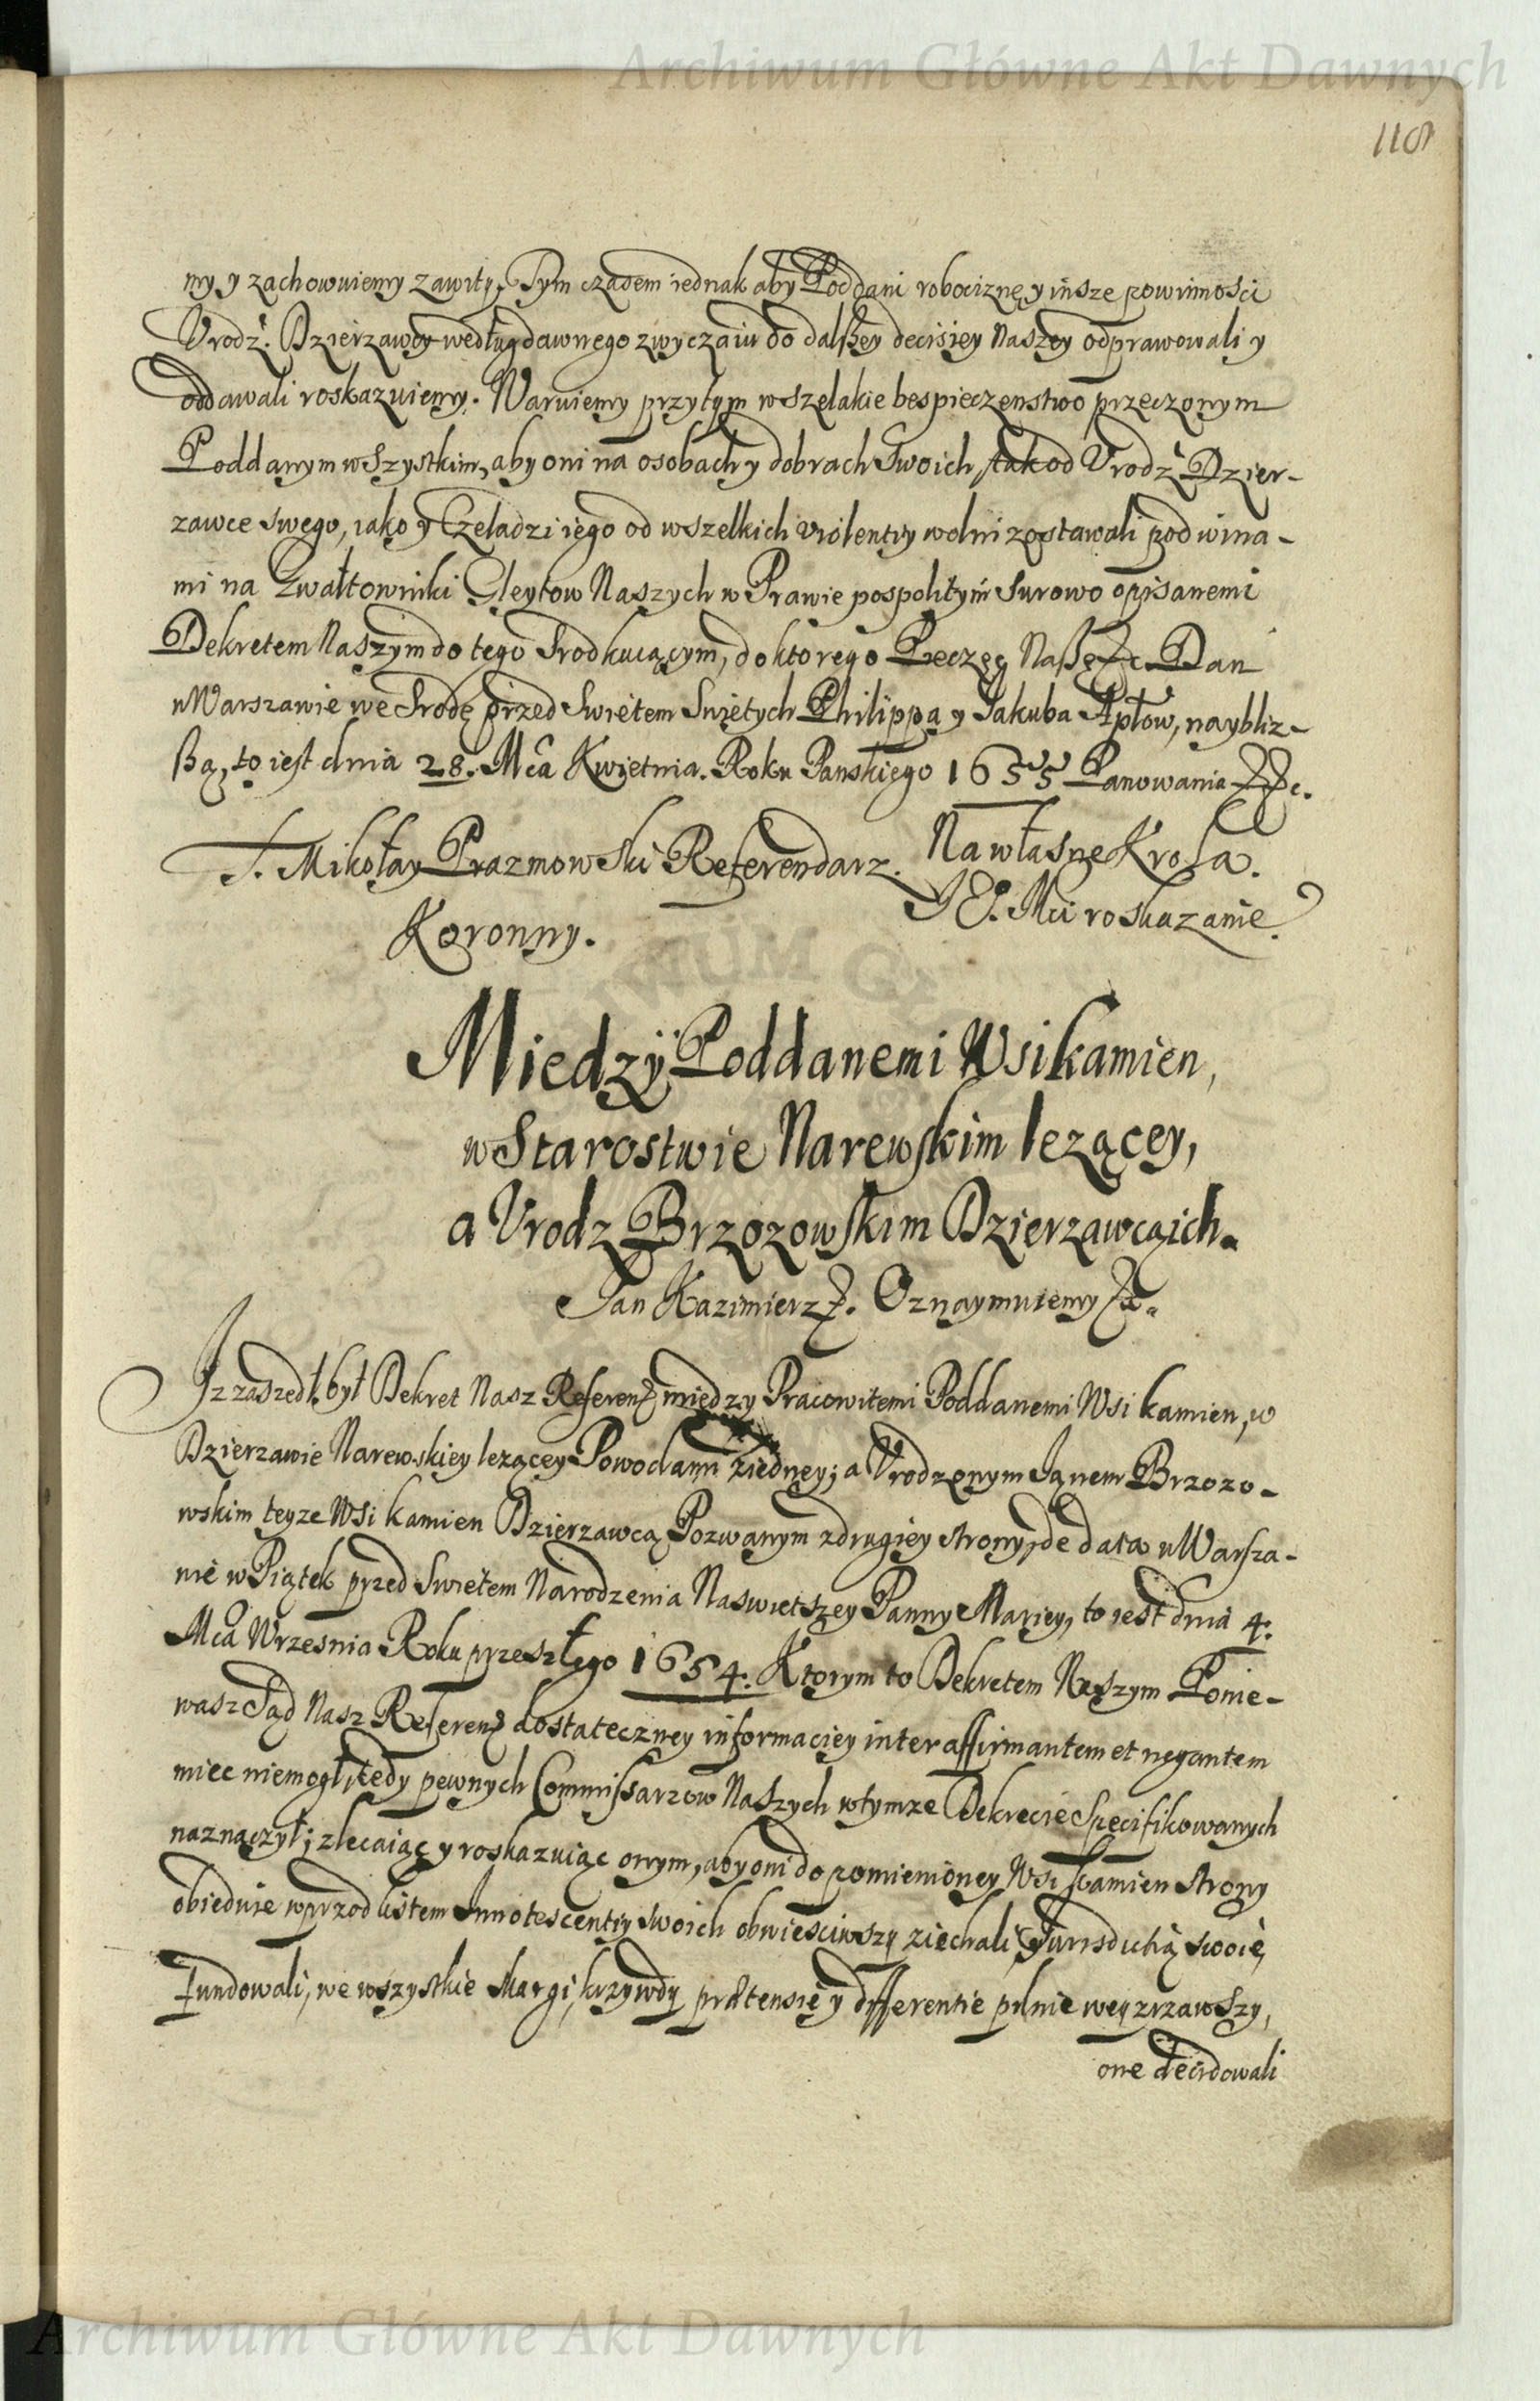 Archiwum Główne Akt Dawnych
118
my y zachowuiemy zawity. Tym czasem iednak aby Poddani robociznę y insze powinności
Vrodz. Dzierzawcy według dawnego zwyczaiu do dalszey decisiey Naszey odprawowali y
oddawali roskazuiemy. Waruiemy przytym wszelakie bespieczenstwo przeczonym
Poddanym wszystkim, aby oni na osobach y dobrach Swoich, tak od Vrodz Dzier-
zawce swego, iako y Czeladzi iego od wszelkich violentiy wolni zostawali pod wina-
mi na Gwałtowniki Gleytow Naszych w Prawie pospolitym Surowo opisanemi
Dekretem Naszym do tego Srodkuiącym, do ktorego Pieczęć Naszę &c. Dan
w Warszawie we Srodę przed Swiętem Swiętych Philippa y Jakuba Apłow, naybliz-
szą, to iest dnia 28. Mca Kwietnia. Roku Panskiego 1655 Panowania &&c.
Mikołay Prazmowski Referendarz
Koronny.
Na własne Krola.
JE. Mci roskazanie.
Miedzy Poddanemi Wsi kamien,
w Starostwie Narewskim lezącey,
a Vrodz Brzozowskim Dzierzawcą ich.
Jan Kazimierz &. Oznaymuiemy &.
Iz zaszedł był Dekret Nasz Referen między Pracowitemi Poddanemi Wsi kamien, w
Dzierzawie Narewskiey lezącey Powodami z iedney; a Vrodzonym Janem Brzozo-
wskim teyze Wsi kamien Dzierzawcą Pozwanym z drugiey strony, de data w Warsza-
wie w Piątek przed Swietem Narodzenia Naswietszey Panny Mariey, to iest dnia 4.
Mca Wrzesnia Roku przeszłego 1654. Ktorym to Dekretem Naszym Ponie-
wasz Sąd Nasz Referen dostateczney informaciey inter affirmantem et negantem
miec niemogł, tedy pewnych Commissarzow Naszych w tymze Dekrecie Specifikowanych
naznaczył; zlecaiąc y roskazuiąc onym, aby oni do pomienioney Wsi kamien strony
obiedwie wprzod listem Innotescentiy swoich obwiesciwszy ziechali, Jurisdictią swoię
fundowali, we wszystkie Skargi, krzywdy prætensię y differentie pilnie weyzrzawszy,
one decidowali
Archiwum Główne Akt Dawnych